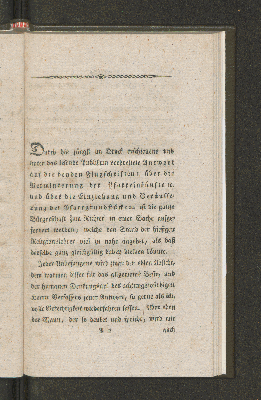 Durch die jüngst im Druck erschienene und
unter das lesende Publikum verbreitete Antwort
auf die beyden Flugschriften: über die
Verminderung der Pfarreinkünfte
und über die Einziehung und Veräusse-
rung der Pfarrgrundstücke, ist die ganze
Bürgerschaft zum Richter in einer Sache aufge-
fordert worden, welche den Stand der hiesigen
Religionslehrer viel zu nahe angehet, als daß
derselbe ganz gleichgültig dabey bleiben könnte.
Jeder Unbefangene wird zwar der edlen Absicht,
dem warmen Eifer für das allgemeine Beste, und
der humanen Denkungsart des achtungswürdigen
Verfassers jener Antwort, so gerne als ich,
volle Gerechtigkeit wiederfahren lassen. Aber eben
der Mann, der so denket und schreibt, wird mir
noch